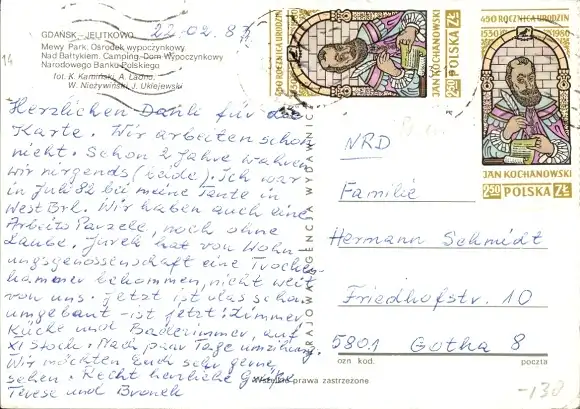 GDAŃSK-JELITKOWO
Mewy. Park. Ośrodek wypoczynkowy
Nad Bałtykiem. Camping. Dom Wypoczynkowy
Narodowego Banku Polskiego
fot. K. Kamiński, A. Ładno,
W. Nieżywiński, J. Uklejewski
22.02.83
14
Herzlichen Dank für die
Karte. Wir arbeiten schon
nicht. Schon 2 Jahre wahren
wir nirgends (beide). Ich war
in Juli 82 bei meine Tante in
West Brl. Wir haben auch eine
Arbeits Parzele, noch ohne
Laube. Jurek hat von Wohn
ungsgenossenschaft eine Trocken
kammer bekommen, nicht weit
von uns. Jetzt ist das schon
umgebaut - ist jetzt: Zimmer
Küche und Badezimmer, auf
XI stock. Nach paar Tage umziehung.
Wir möchten Euch sehr gerne
sehen. Recht herzliche Grüße
Terese und Bronek
KRAJOWA AGENCJA WYDAWNICZA
450 ROCZNICA URODZIN
JAN KOCHANOWSKI
2,50 POLSKA ZŁ
450 ROCZNICA URODZIN
1530 1980
JAN KOCHANOWSKI
2,50 POLSKA ZŁ
NRD
Familie
Hermann Schmidt
Friedhofstr. 10
5801 Gotha 8
ozn kod. poczta
Wszelkie prawa zastrzeżone
-130